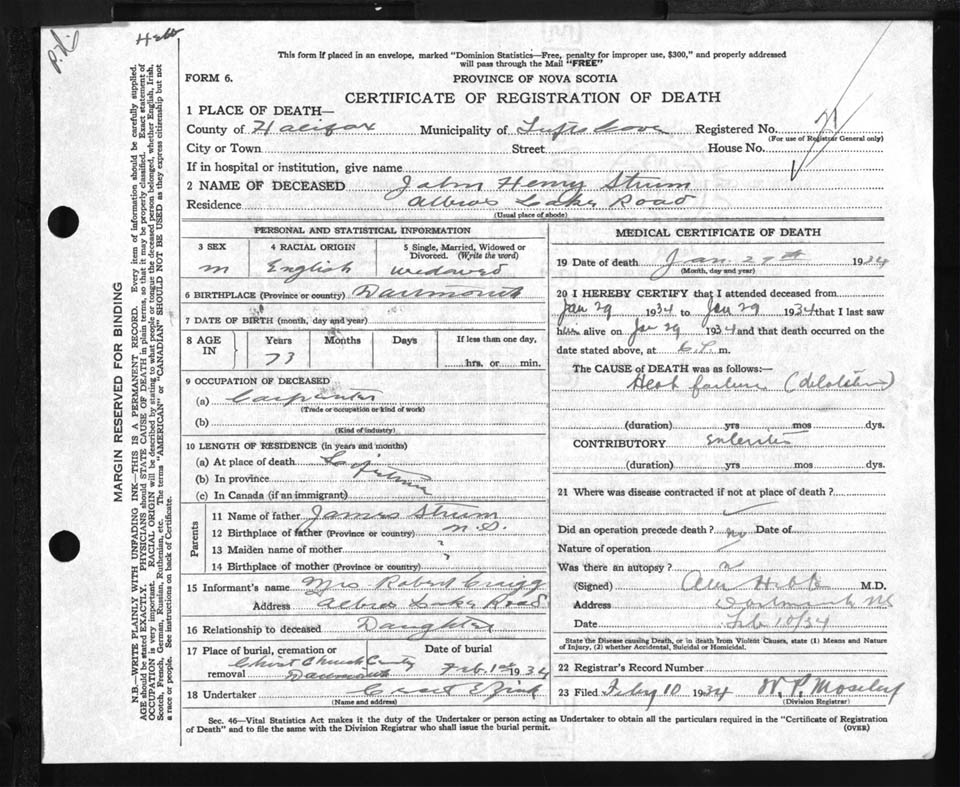 Hebb
This form if placed in an envelope, marked "Dominion Statistics—Free, penalty for improper use, $300," and properly addressed
will pass through the Mail "FREE"
FORM 6.
PROVINCE OF NOVA SCOTIA
CERTIFICATE OF REGISTRATION OF DEATH
1 PLACE OF DEATH—
County of Halifax Municipality of Tufts Cove Registered No. 21
(For use of Registrar General only)
City or Town Street House No.
If in hospital or institution, give name
2 NAME OF DECEASED John Henry Strum
Residence Albro's Lake Road
(Usual place of abode)
PERSONAL AND STATISTICAL INFORMATION
3 SEX 4 RACIAL ORIGIN 5 Single, Married, Widowed or
Divorced. (Write the word)
m English widowed
6 BIRTHPLACE (Province or country) Dartmouth
7 DATE OF BIRTH (month, day and year)
8 AGE IN Years Months Days If less than one day,
73 hrs. or min.
9 OCCUPATION OF DECEASED
(a) Carpenter
(Trade or occupation or kind of work)
(b)
(Kind of industry)
10 LENGTH OF RESIDENCE (in years and months)
(a) At place of death Lifetime
(b) In province
(c) In Canada (if an immigrant)
Parents
11 Name of father James Strum
12 Birthplace of father (Province or country) N.S.
13 Maiden name of mother ?
14 Birthplace of mother (Province or country) ?
15 Informant's name Mrs Robert Craigg
Address Albros Lake Road
16 Relationship to deceased Daughter
17 Place of burial, cremation or removal Date of burial
Christ Church Cemetery
Dartmouth Feb. 1st 1934
18 Undertaker
(Name and address)
MEDICAL CERTIFICATE OF DEATH
19 Date of death Jan. 29th 1934
(Month, day and year)
20 I HEREBY CERTIFY that I attended deceased from
Jan 29 1934 to Jan 29 1934 that I last saw
him alive on Jan 29 1934 and that death occurred on
date stated above, at 6 P. m.
The CAUSE of DEATH was as follows:—
Heart failure (dilatation)
(duration) yrs mos dys.
CONTRIBUTORY Enteritis
(duration) yrs mos dys.
21 Where was disease contracted if not at place of death?
Did an operation precede death? no Date of
Nature of operation
Was there an autopsy?
(Signed) Hebb M.D.
Address Dartmouth NS
Date Feb 10/34
State the Disease causing Death, or in death from Violent Causes, state (1) Means and Nature
of Injury, (2) whether Accidental, Suicidal or Homicidal.
22 Registrar's Record Number
23 Filed Feby 10 1934 W. P. Moseley
(Division Registrar)
Sec. 46—Vital Statistics Act makes it the duty of the Undertaker or person acting as Undertaker to obtain all the particulars required in the "Certificate of Registration
of Death" and to file the same with the Division Registrar who shall issue the burial permit.
(OVER)
MARGIN RESERVED FOR BINDING
N.B.—WRITE PLAINLY WITH UNFADING INK—THIS IS A PERMANENT RECORD. Every item of information should be carefully supplied.
AGE should be stated EXACTLY. PHYSICIANS should STATE CAUSE OF DEATH in plain terms, so that it may be properly classified. Exact statement of
OCCUPATION is very important. RACIAL ORIGIN will be described by stating to what people or tongue the deceased person belonged, whether English, Irish,
Scotch, French, German, Russian, Ruthenian, etc. The terms "AMERICAN" or "CANADIAN" SHOULD NOT BE USED as they express citizenship but not
a race or people. See instructions on back of Certificate.